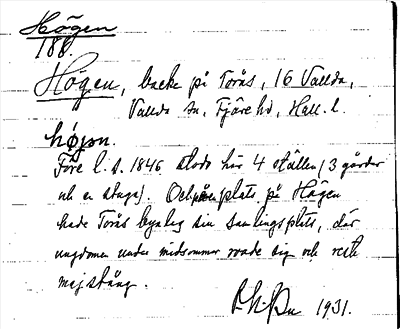 Högen
188.
Högen, backe på Torås, 16 Vallda,
Vallda sn, Fjäre hd, Hall. l.
högen.
Före l. s. 1846 stodo här 4 ställen (3 gårder
och en stuga). Och på en plats på Högen
hade Torås byalag sin samlingsplats, där
ungdomen under midsommar roade sig och reste
majstång.
1931.